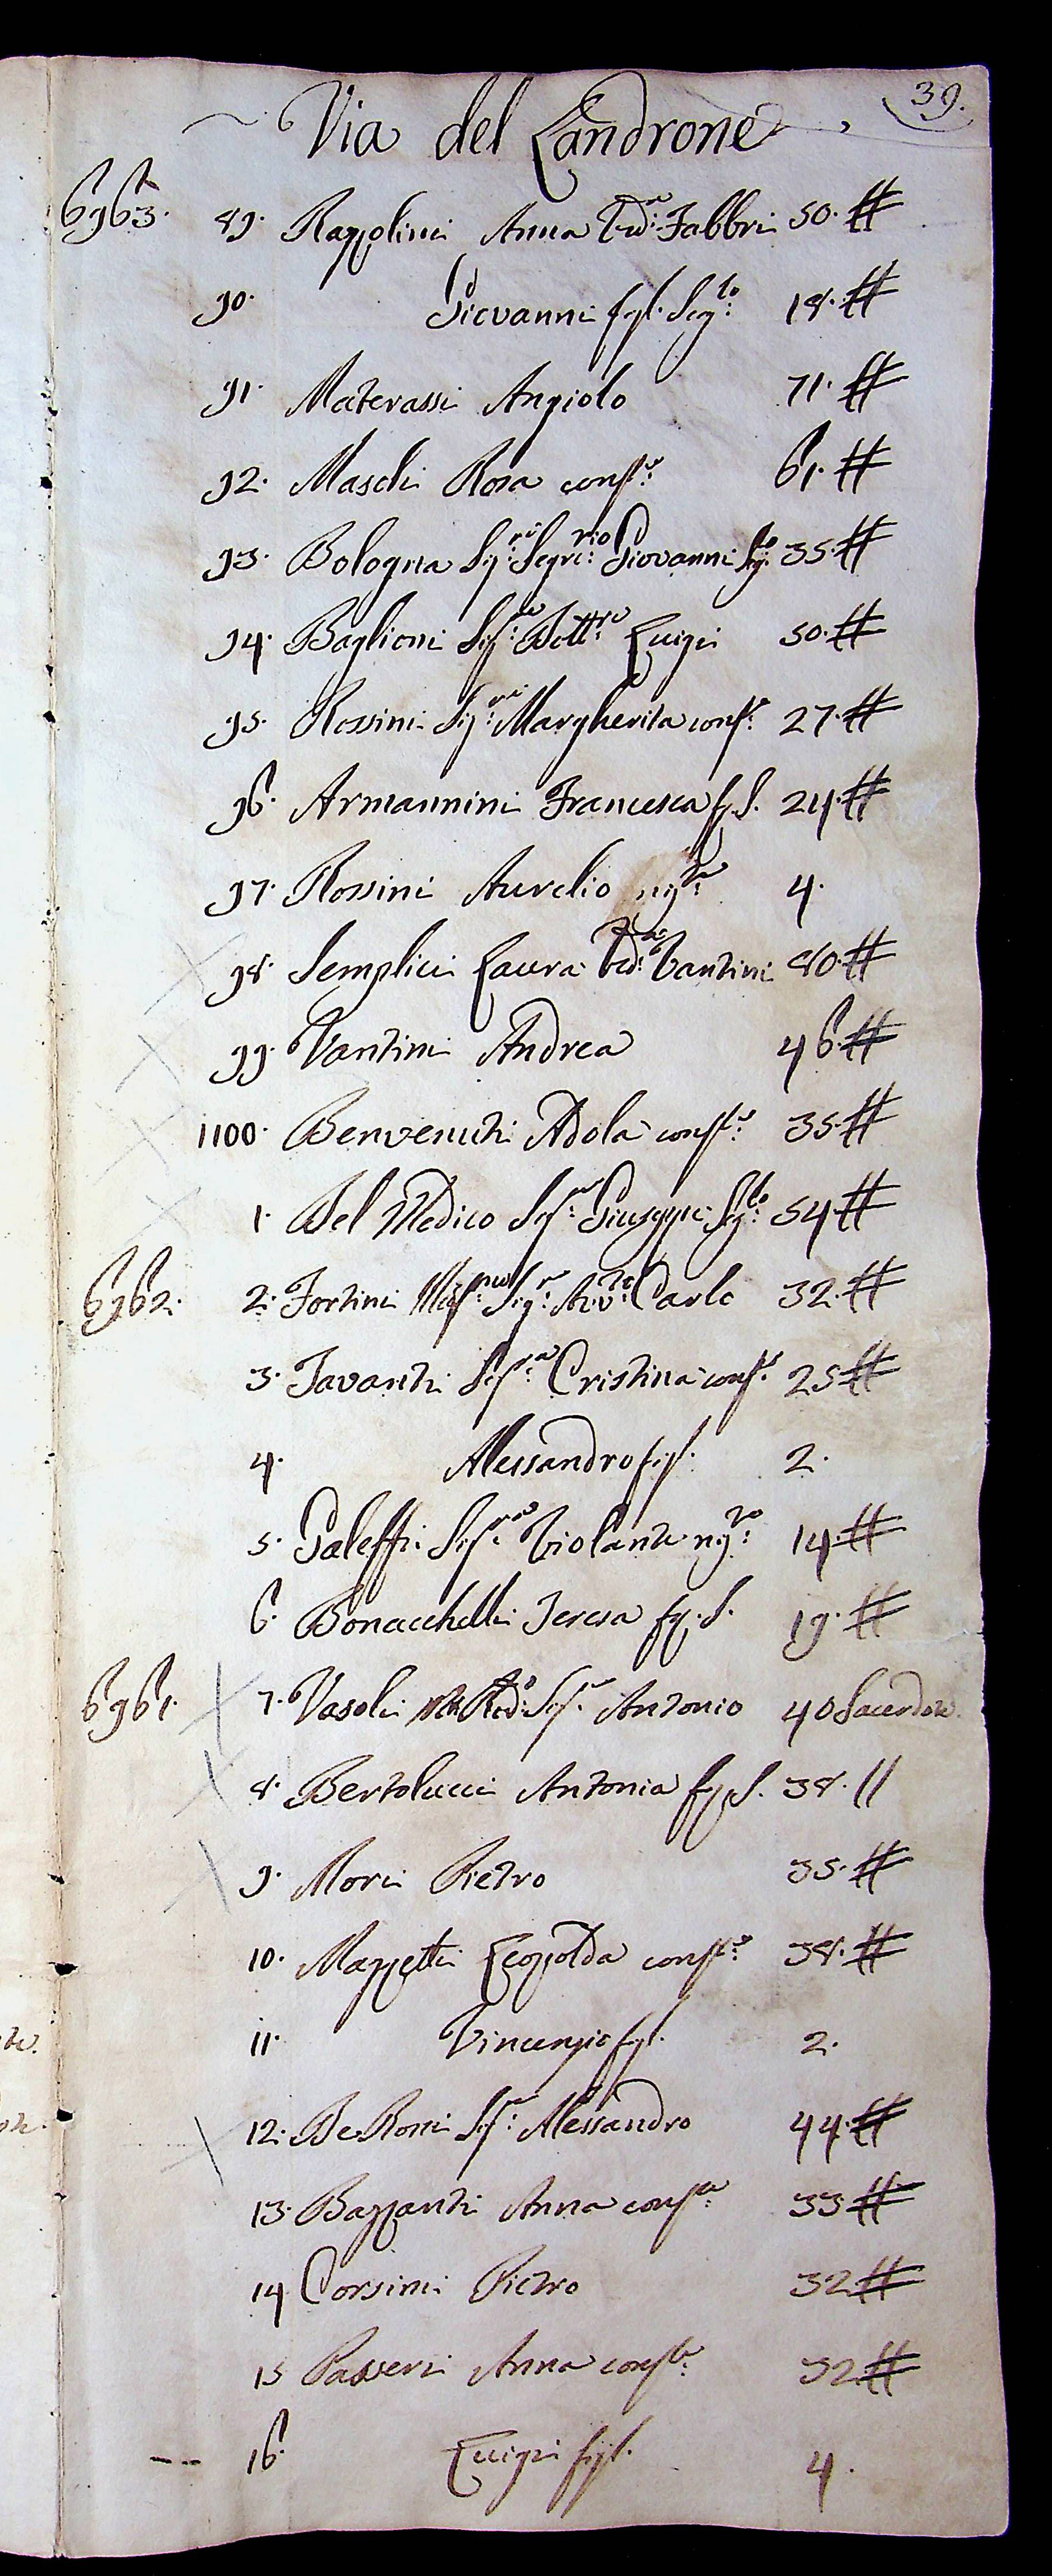 39.
Via del Landrone
6963. 89. Razzolini Anna Ved:a Fabbri 50. #
90. Giovanni figl. Seg:to 18. #
91. Materassi Angiolo 71. #
92. Maschi Rosa cons:e 61. #
93. Bologna Sig:re Segre:rio Giovanni Sg:to 35. #
94. Baglioni Sig:re Dott:re Luigi 50. #
95. Rossini Sig:ra Margherita cons:e 27. #
96. Armannini Francesca f.S. 24. #
97. Rossini Aurelio nip:te 4.
98. Semplici Laura Ved:a Vantini 80. #
99. Vantini Andrea 46. #
1100. Benvenuti Adola cons:e 35. #
1. Del Medico Sig:re Giuseppe Sg:to 54 #
6962. 2. Fortini Ill:mo Sig:r Avv:to Carlo 32. #
3. Tavanti Sig:ra Cristina cons:e 25 #
4. Alessandro figl. 2.
5. Galeffi Sig:ra Violante nip:te 14. #
6. Bonacchelli Teresa f. S. 19. #
6961. 7. Vasoli Rev:do Sig:r Antonio 40 Sacerdote.
8. Bertolucci Antonia f. S. 38. //
9. Mori Pietro 35. #
10. Mazzetti Leopolda cons:e 38. #
11. Vincenzio figl. 2.
12. De Rossi Sig:r Alessandro 44. #
13. Bazzanti Anna cons:e 33 #
14 Corsini Pietro 32 #
15 Passeri Anna cons:e 32 #
16. Luigi figl. 4.